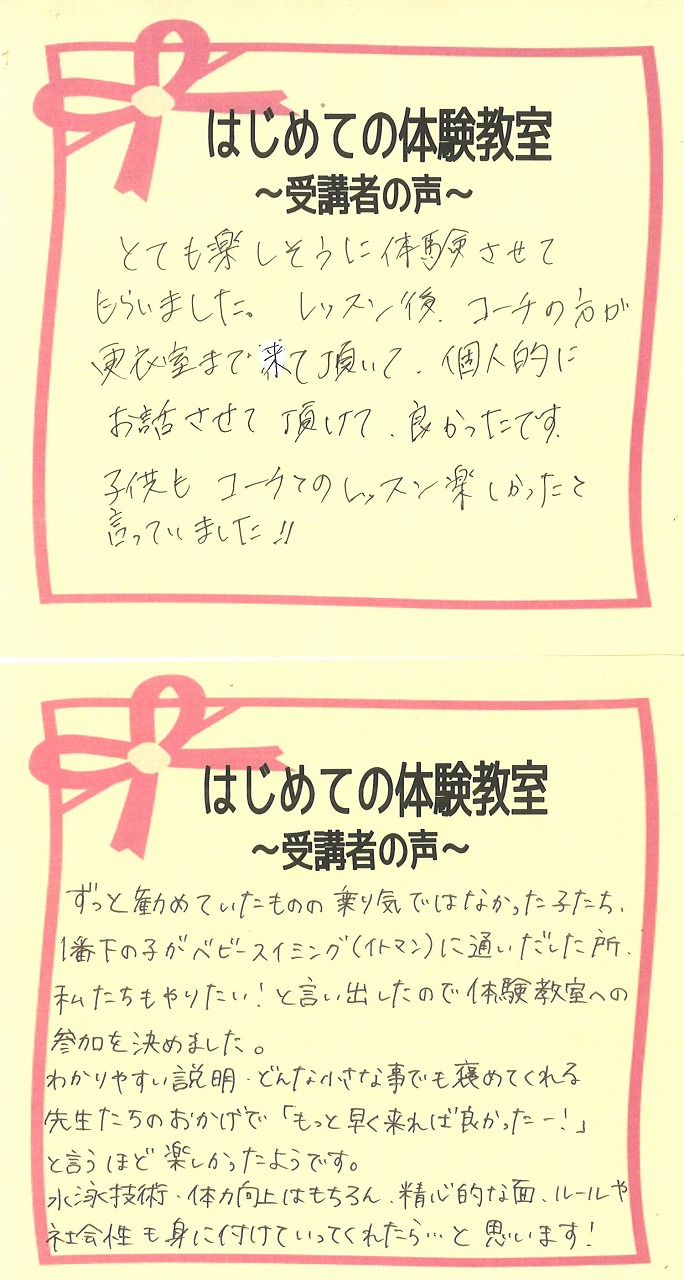 はじめての体験教室
～受講者の声～
とても楽しそうに体験させて
もらいました。 レッスン後、コーチの方が
更衣室まで来て頂いて、個人的に
お話させて頂けて、良かったです。
子供も コーチてのレッスン楽しかったと
言っていました!!
はじめての体験教室
～受講者の声～
ずっと勧めていたものの乗り気ではなかった子たち、
1番下の子がベビースイミング(イトマン)に通いだした所、
私たちもやりたい!と言い出したので体験教室への
参加を決めました。
わかりやすい説明・どんな小さな事でも褒めてくれる
先生たちのおかげで「もっと早く来れば良かったー!」
と言うほど楽しかったようです。
水泳技術・体力向上はもちろん、精心的な面、ルールや
社会性も身に付けていってくれたら…と思います!